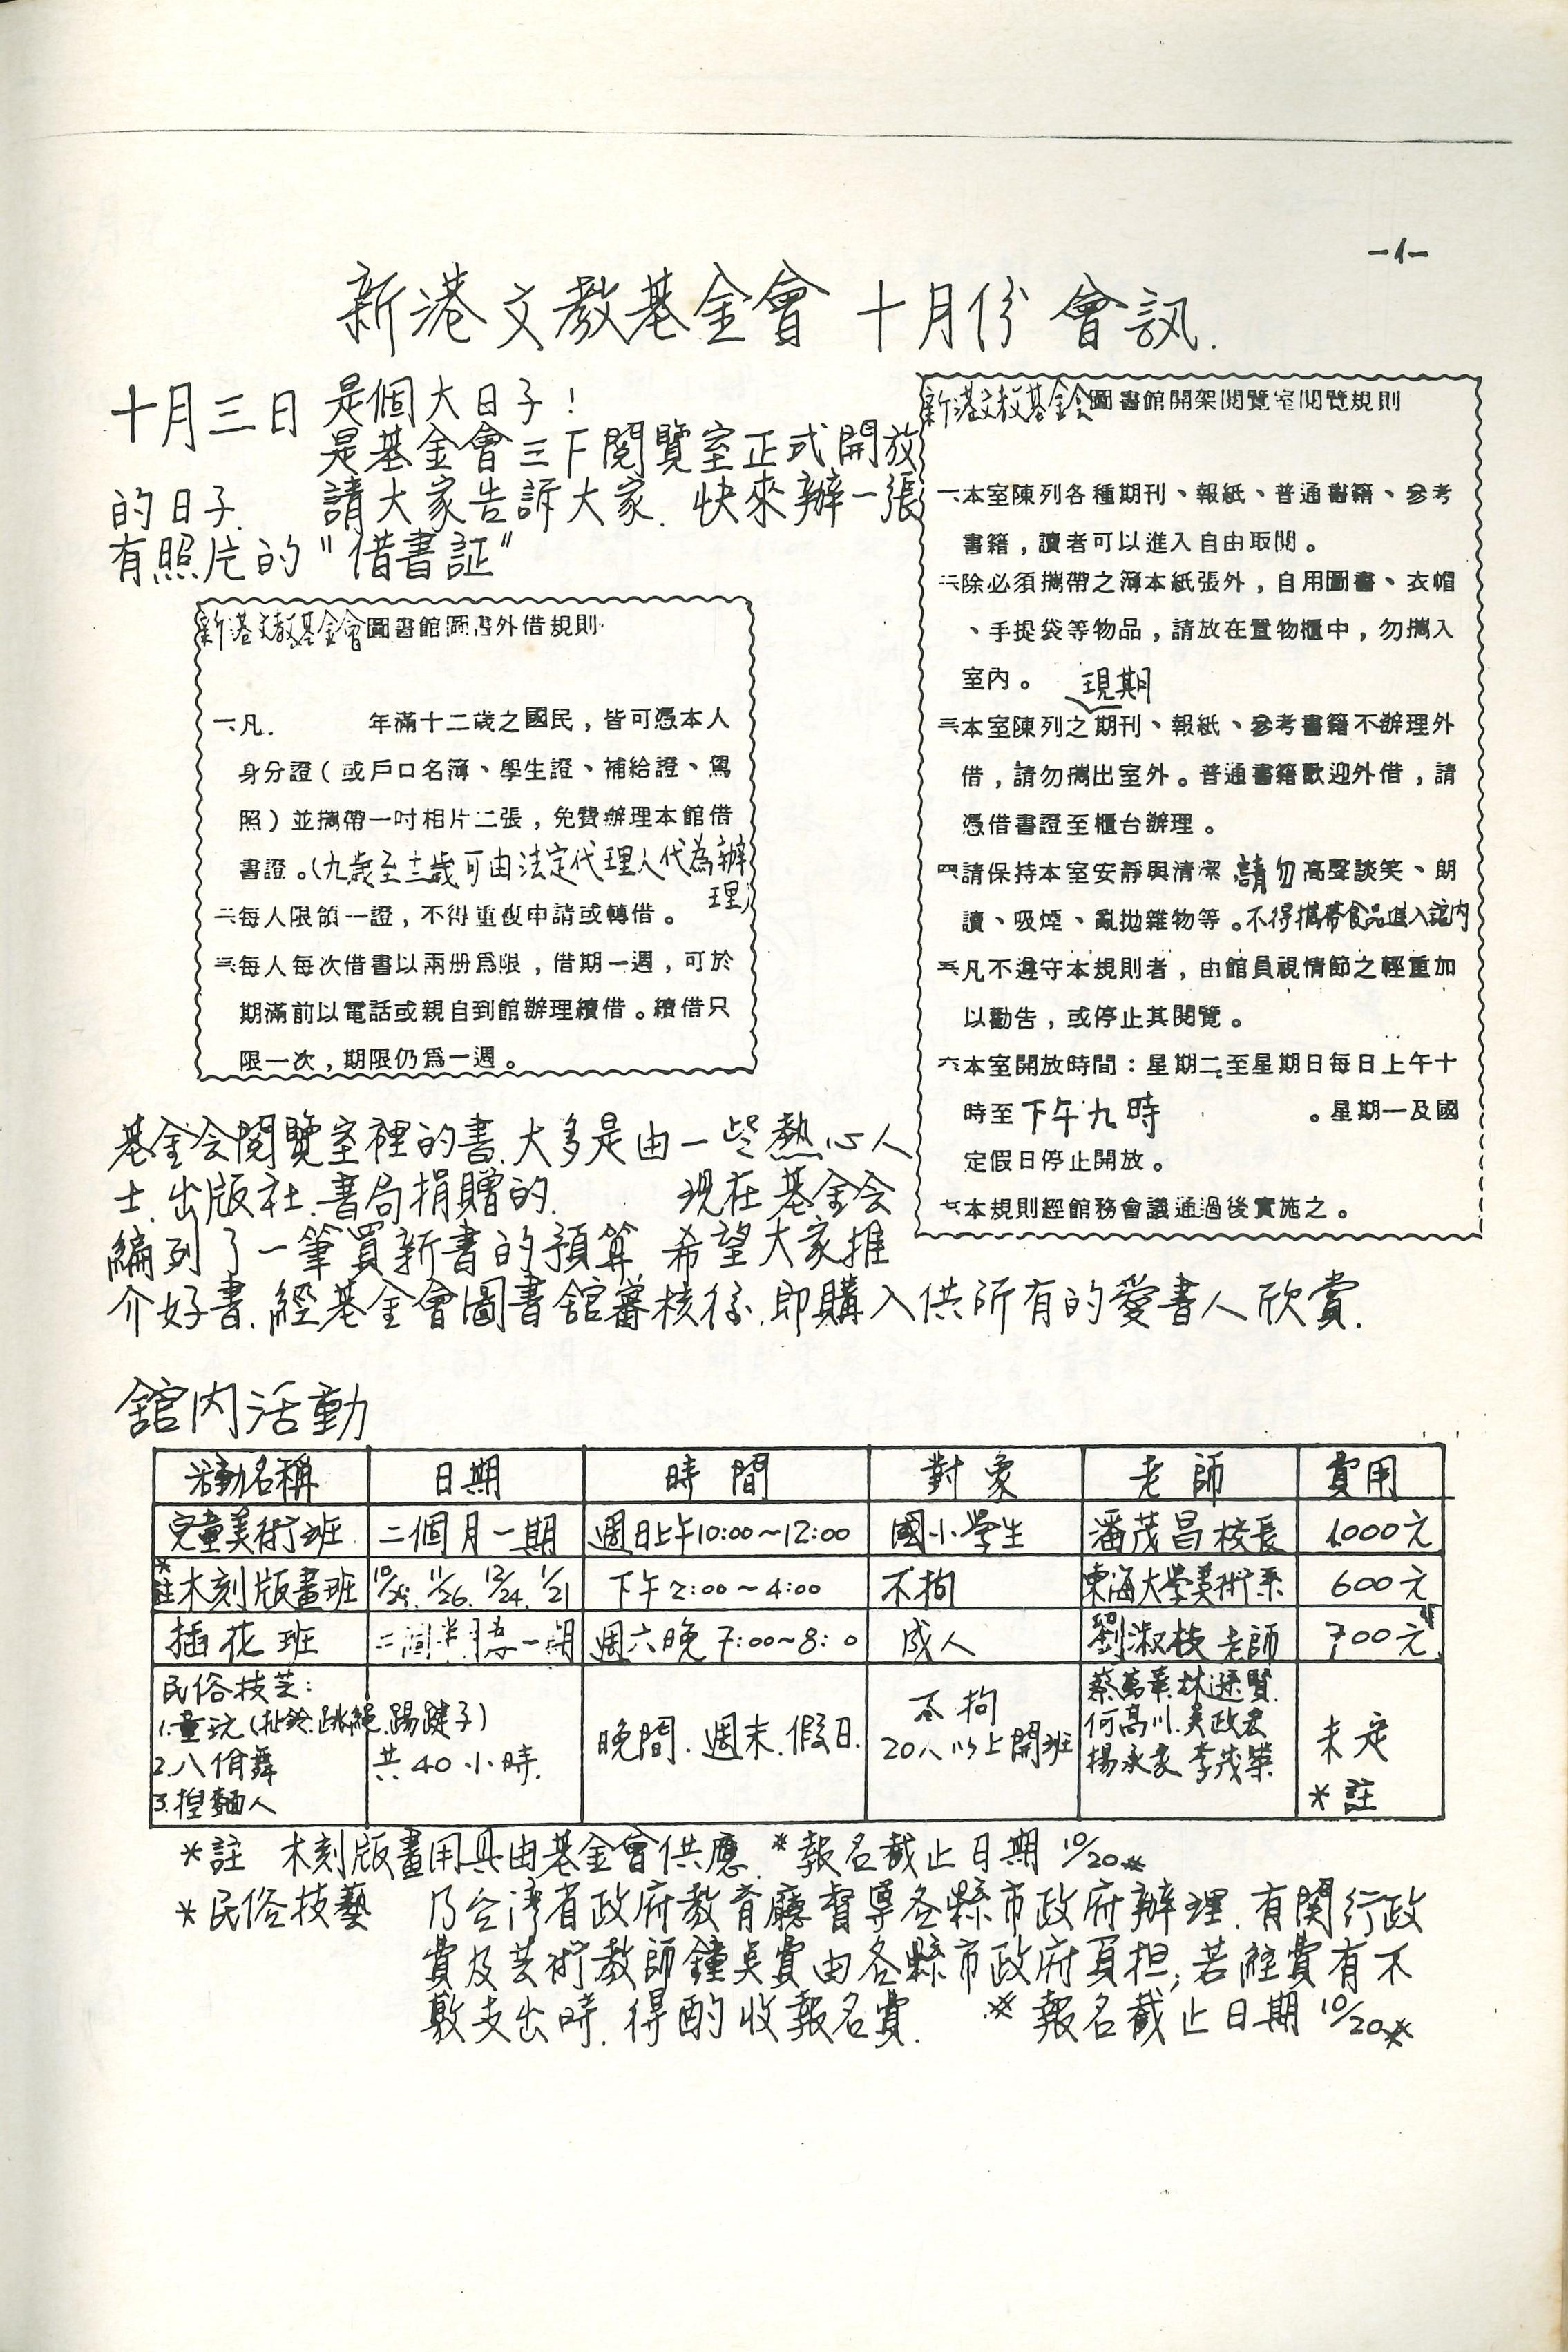 -1-
新港文教基金會 十月份 會訊.
十月三日 是個大日子!
是基金會三下閱覽室正式開放
的日子. 請大家告訴大家. 快來辦一張
有照片的"借書証"
新港文教基金會圖書館圖書外借規則
一、凡. 年滿十二歲之國民，皆可憑本人
身分證（或戶口名簿、學生證、補給證、駕
照）並攜帶一吋相片二張，免費辦理本館借
書證。(九歲至十二歲可由法定代理人代為辦
理)
二、每人限領一證，不得重複申請或轉借。
三、每人每次借書以兩册爲限，借期一週，可於
期滿前以電話或親自到館辦理續借。續借只
限一次，期限仍爲一週。
新港文教基金会圖書館開架閱覽室閱覽規則
一、本室陳列各種期刊、報紙、普通書籍、參考
書籍，讀者可以進入自由取閱。
二、除必須攜帶之簿本紙張外，自用圖書、衣帽
、手提袋等物品，請放在置物櫃中，勿攜入
室內。
現期
三、本室陳列之期刊、報紙、參考書籍不辦理外
借，請勿攜出室外。普通書籍歡迎外借，請
憑借書證至櫃台辦理。
四、請保持本室安靜與清潔 請勿高聲談笑、朗
讀、吸煙、亂拋雜物等。不得攜帶食品進入館内
五、凡不遵守本規則者，由館員視情節之輕重加
以勸告，或停止其閱覽。
六、本室開放時間：星期二至星期日每日上午十
時至下午九時 。星期一及國
定假日停止開放。
七、本規則經館務會議通過後實施之。
基金会閱覽室裡的書、大多是由一些熱心人
士.出版社.書局捐贈的. 現在基金会
編列了一筆買新書的預算 希望大家推
介好書.經基金會圖書館審核後.即購入供所有的愛書人欣賞.
館內活動
活動名稱 日期 時間 對象 老師 費用
兒童美術班 二個月一期 週日上午10:00~12:00 國小學生 潘茂昌校長 1000元
*註木刻版畫班 10/29. 11/26. 12/24. 1/21 下午2:00~4:00 不拘 東海大學美術系 600元
插花班 一期 週六晚7:00~8: 0 成人 劉淑枝老師 700元
民俗技芸:
1.童玩(扯鈴.跳繩.踢踺子)
2.八佾舞 共40小時.
3.捏麵人
晚間.週末.假日.
不拘
20人以上開班
蔡萬 林 賢.
何高川.吳政宏
楊永家 李茂榮
未定
*註
*註 木刻版畫用具由基金會供應.*報名截止日期10/20*
*民俗技藝 乃台灣省政府教育廳督導各縣市政府辦理.有関行政
費及芸術教師鐘点費由各縣市政府負担;若經費有不
敷支出時.得酌收報名費. *報名截止日期10/20*